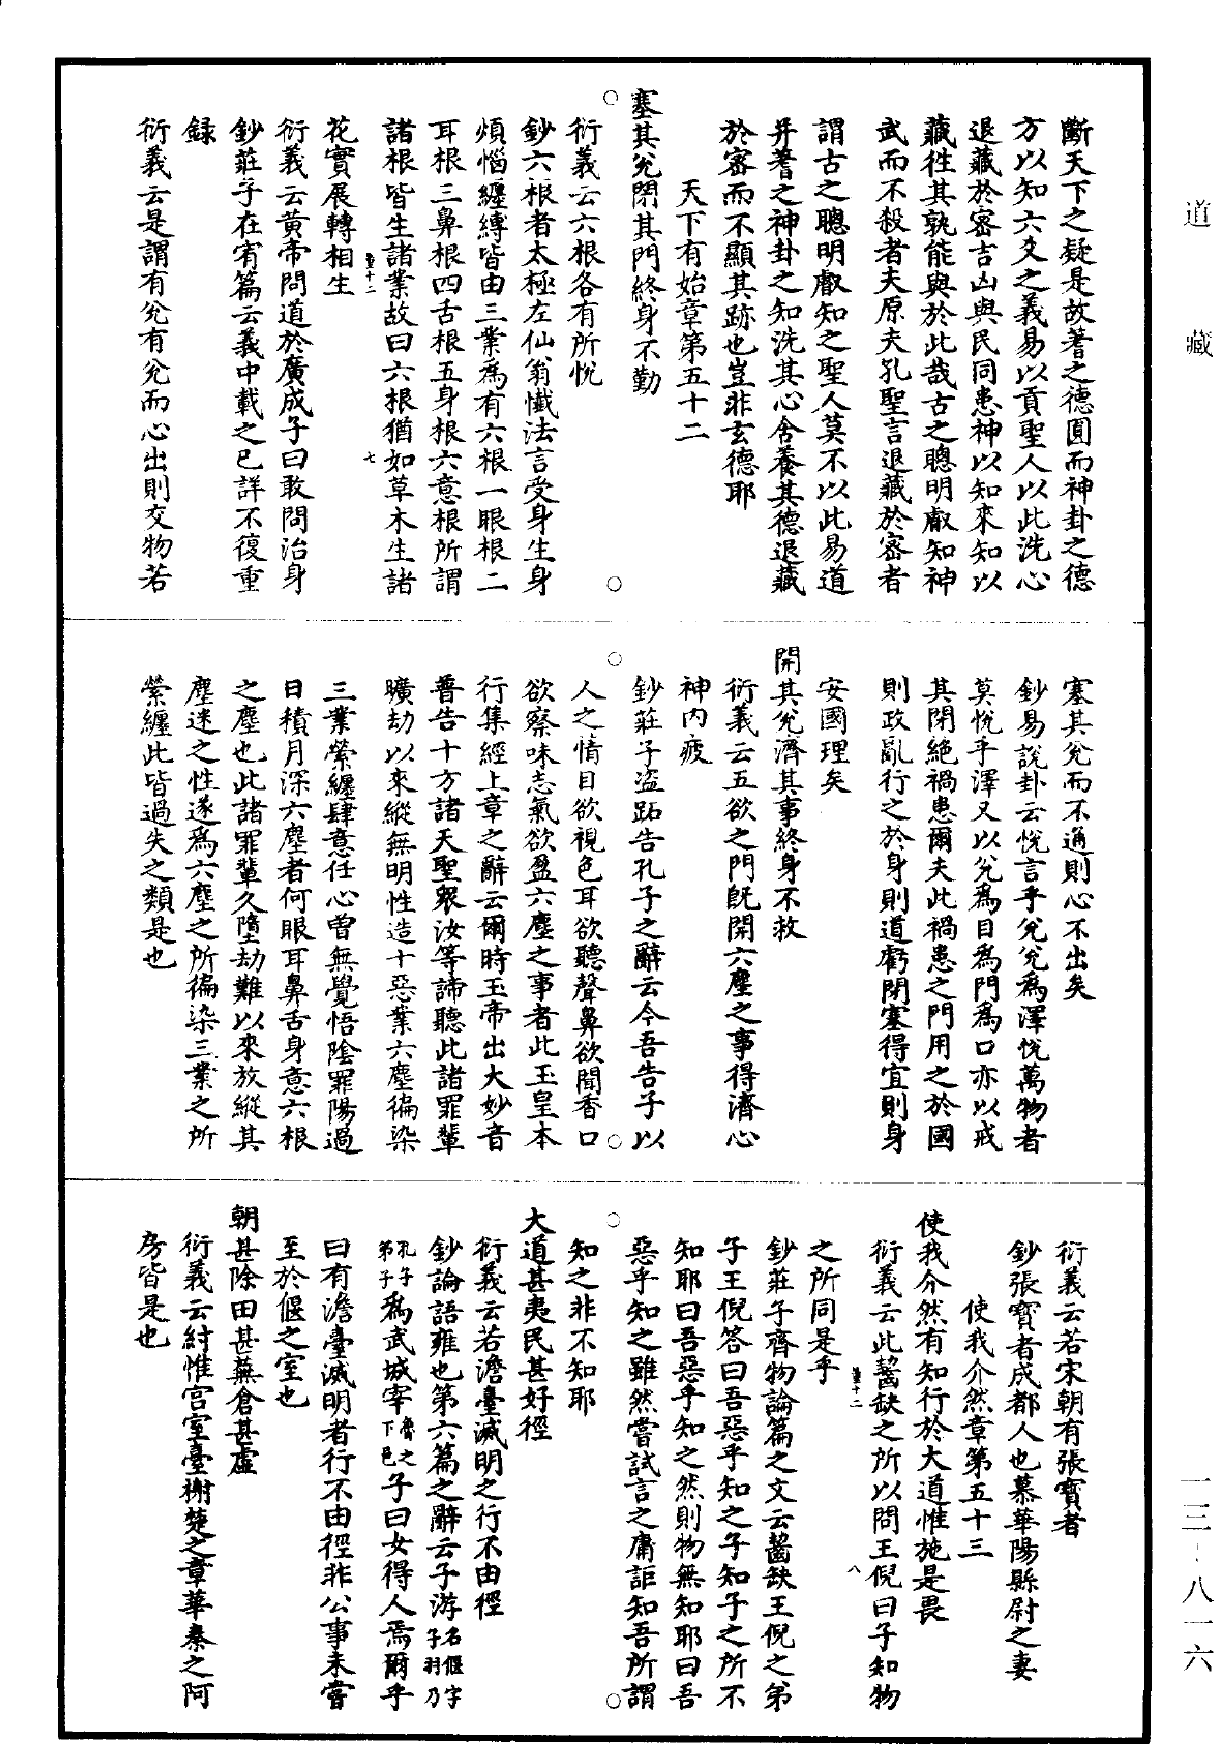 道藏
斷天下之疑是故蓍之德圓而神卦之德
方以知六爻之義易以貢聖人以此洗心
退藏於密吉凶與民同患神以知來知以
藏徃其孰能與於此哉古之聰明叡知神
武而不殺者夫原夫孔聖言退藏於密者
謂古之聰明叡知之聖人莫不以此易道
并蓍之神卦之知洗其心舍養其德退藏
於密而不顯其跡也豈非玄德耶
天下有始章第五十二
塞其兊閉其門終身不勤
衍義云六根各有所悅
鈔六根者太極左仙翁懺法言受身生身
煩惱纏縛皆由三業為有六根一眼根二
耳根三鼻根四舌根五身根六意根所謂
諸根皆生諸業故曰六根猶如草木生諸
董十二 七
花實展轉相生
衍義云黄帝問道於廣成子曰敢問治身
鈔莊子在宥篇云義中載之已詳不復重
録
衍義云是謂有兊有兊而心出則交物若
塞其兊而不通則心不出矣
鈔易說卦云悅言乎兊兊為澤悅萬物者
莫悅乎澤又以兊為目為門為口亦以戒
其閉絕禍患爾夫此禍患之門用之於國
則政亂行之於身則道虧閉塞得宜則身
安國理矣
開其兊濟其事終身不救
衍義云五欲之門旣開六塵之事得濟心
神内疲
鈔莊子盗跖告孔子之辭云今吾告子以
人之情目欲視色耳欲聽聲鼻欲聞香口
欲察味志氣欲盈六塵之事者此玉皇本
行集經上章之辭云爾時玉帝出大妙音
普告十方諸天聖衆汝等諦聽此諸罪輩
曠劫以來縱無明性造十惡業六塵徧染
三業縈纏肆意任心曾無覺悟陰罪陽過
日積月深六塵者何眼耳鼻舌身意六根
之塵也此諸罪輩久墮劫難以來放縱其
塵迷之性遂為六塵之所徧染三業之所
縈纏此皆過失之類是也
衍義云若宋朝有張寶者
鈔張寶者成都人也慕華陽縣尉之妻
使我介然章第五十三
使我介然有知行於大道惟施是畏
衍義云此齧缺之所以問王倪曰子知物
董十二 八
之所同是乎
鈔莊子齊物論篇之文云齧缺王倪之第
子王倪答曰吾惡乎知之子知子之所不
知耶曰吾惡乎知之然則物無知耶曰吾
惡乎知之雖然嘗試言之庸詎知吾所謂
知之非不知耶
大道甚夷民甚好徑
衍義云若澹臺滅明之行不由徑
鈔論語雍也第六篇之辭云子游名偃字子羽乃
孔子弟子為武城宰魯之下邑子曰女得人焉爾乎
曰有澹臺滅明者行不由徑非公事未嘗
至於偃之室也
朝甚除田甚蕪倉甚虛
衍義云紂惟宫室臺榭楚之章華秦之阿
房皆是也
一三-八一六